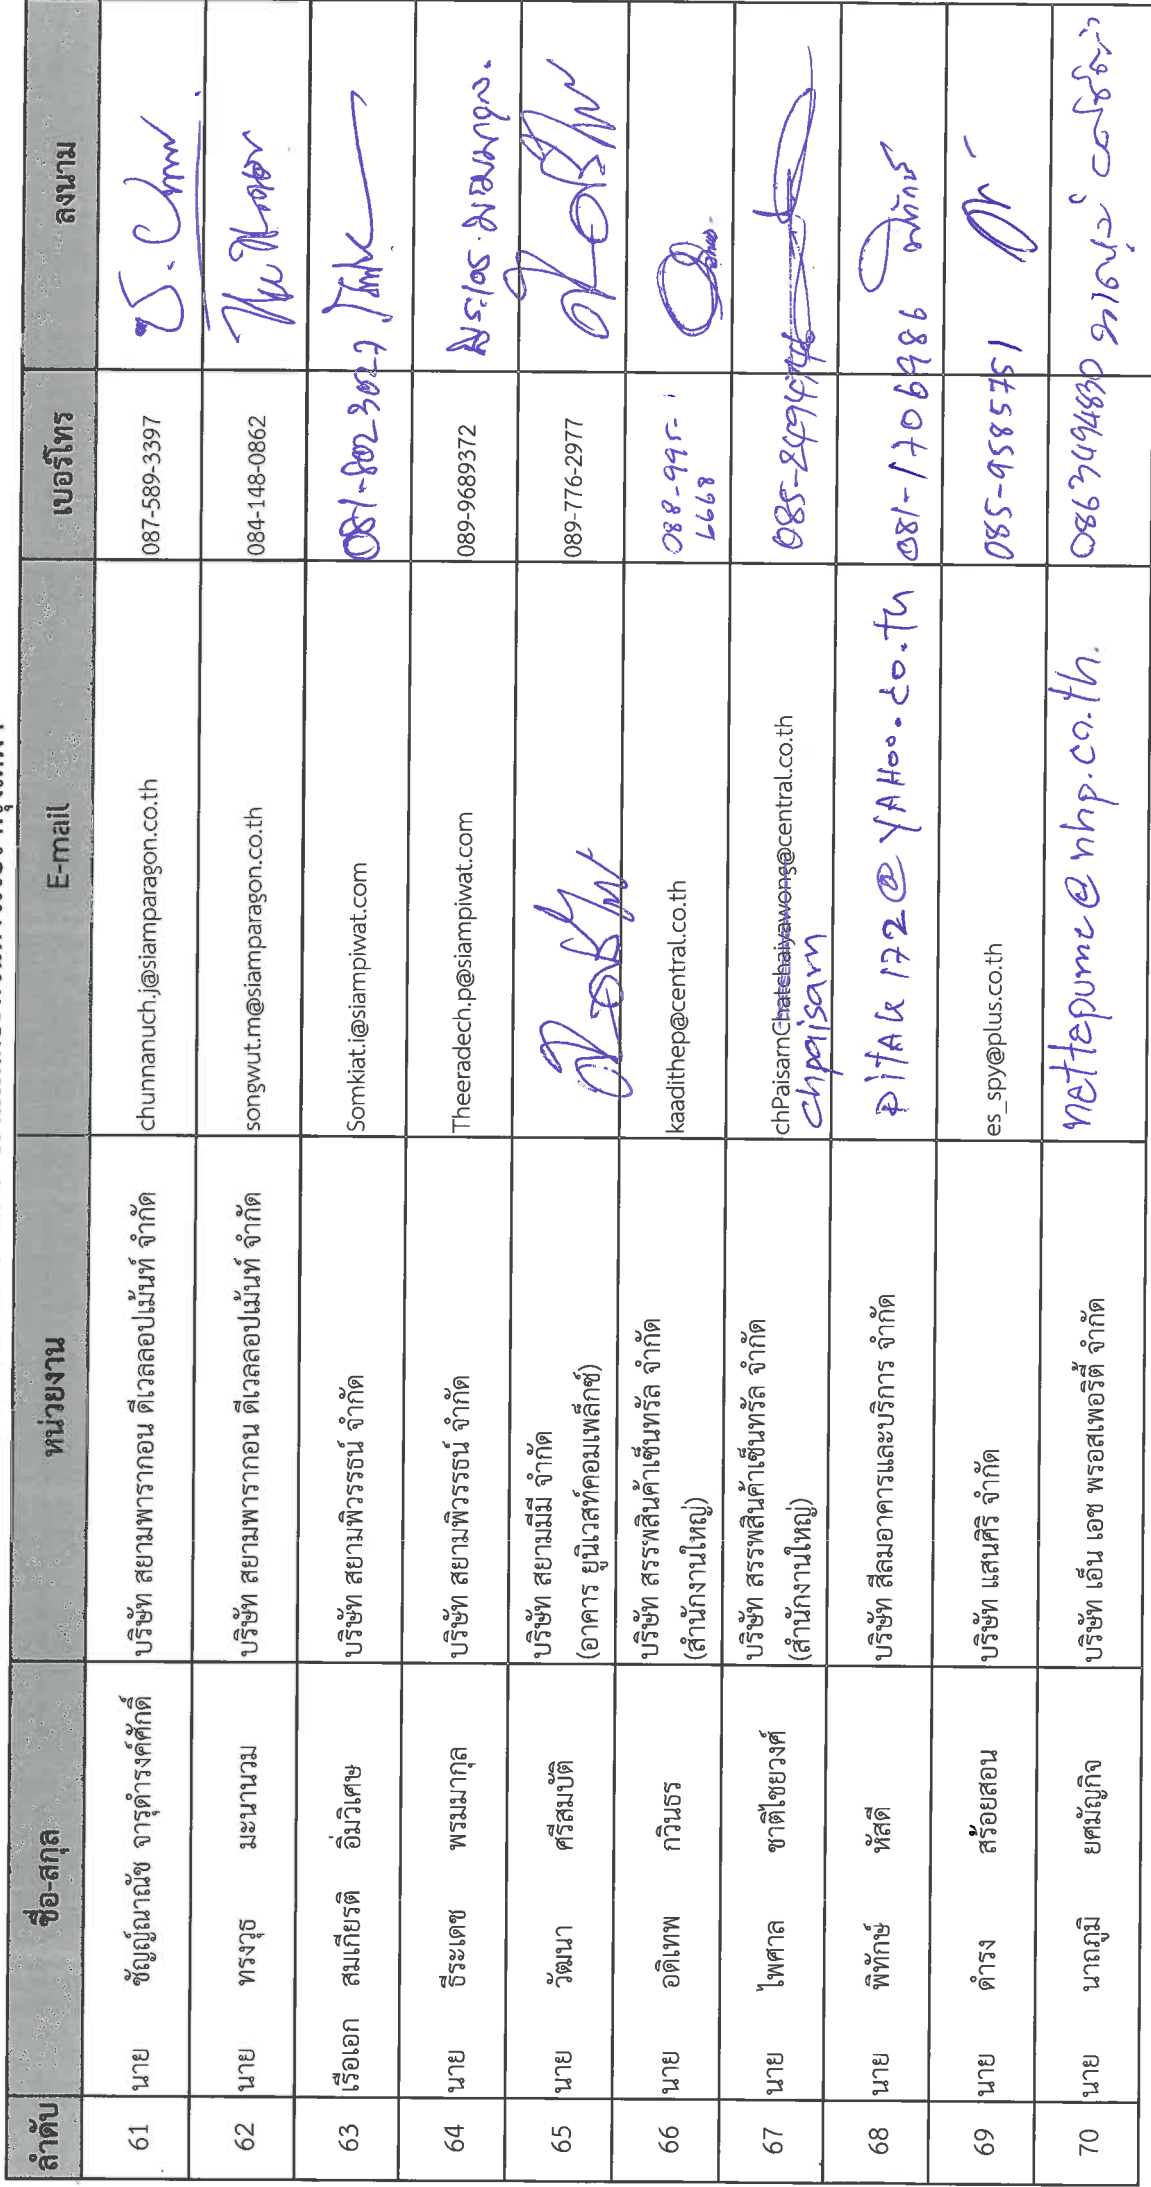 ลำดับ ชื่อ-สกุล หน่วยงาน E-mail เบอร์โทร ลงนาม
61 นาย ชัญญ์ญาณัช จารุดำรงค์ศักดิ์ บริษัท สยามพารากอน ดีเวลลอปเม้นท์ จำกัด chunnanuch.j@siamparagon.co.th 087-589-3397
62 นาย ทรงวุธ มะนานวม บริษัท สยามพารากอน ดีเวลลอปเม้นท์ จำกัด songwut.m@siamparagon.co.th 084-148-0862
63 เรือเอก สมเกียรติ อิ่มวิเศษ บริษัท สยามพิวรรธน์ จำกัด Somkiat.i@siampiwat.com 081-802 3027
64 นาย ธีระเดช พรมมากุล บริษัท สยามพิวรรธน์ จำกัด Theeradech.p@siampiwat.com 089-9689372
65 นาย วัฒนา ศรีสมบัติ บริษัท สยามมีมี จำกัด 089-776-2977
(อาคาร ยูนิเวสท์คอมเพล็กซ์)
66 นาย อดิเทพ กวินธร บริษัท สรรพสินค้าเซ็นทรัล จำกัด kaadithep@central.co.th 088-995-
(สำนักงานใหญ่) 6668
67 นาย ไพศาล ชาติไชยวงศ์ บริษัท สรรพสินค้าเซ็นทรัล จำกัด chPaisarnChatchaiyawong@central.co.th
(สำนักงานใหญ่) chpaisarn
68 นาย พิทักษ์ หัสดี บริษัท สีลมอาคารและบริการ จำกัด PiTAK 172@YAHOO.CO.TH 081-1706986 พิทักษ์
69 นาย ดำรง สร้อยสอน บริษัท แสนศิริ จำกัด es_spy@plus.co.th 085-9585751
70 นาย นาถภูมิ ยศมัญกิจ บริษัท เอ็น เอช พรอสเพอริตี้ จำกัด nattepume@nhp.co.th. 0863494830